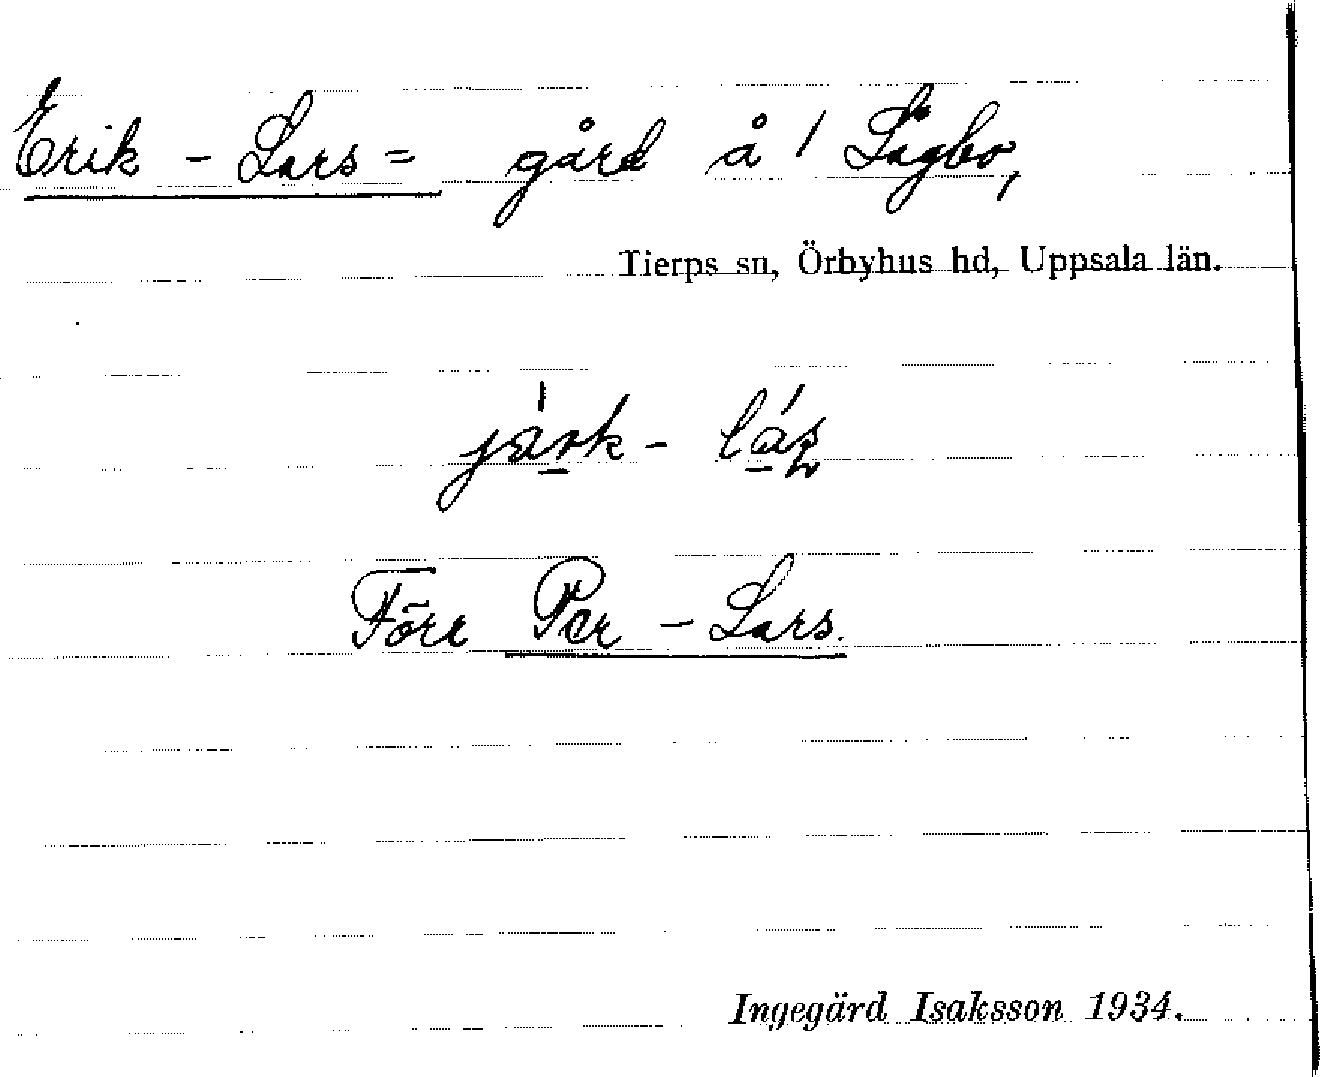 Erik - Lars = gård å 1 Lågbo,
Tierps sn, Örbyhus hd, Uppsala län.
Förr Per - Lars.
Ingegärd Isaksson 1934.